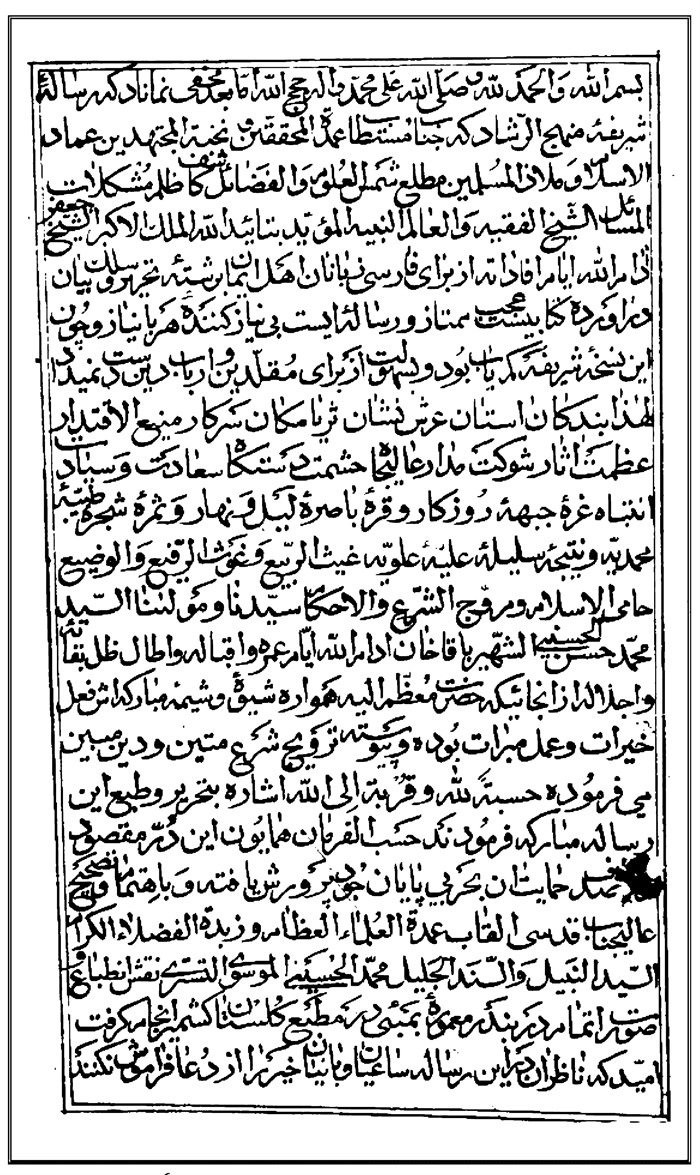 بسم الله والحمد لله وصلى الله على محمد وآله حجج الله اما بعد مخفى نماناد كه رسالهٔ
شریفهٔ منهج الرشاد كه جناب مستطاب عمدة المحققین و نخبة المجتهدین عماد
الاسلام و ملاذ المسلمین مطلع شمس العلوم والفضائل كاشف ظلم مشكلات
المسائل الشیخ الفقیه والعالم النبیه المؤید بتائید الله الملك الاكبر الشیخ جعفر
ادام الله ایام افاداته از برای فارسی زبانان اهل ایمان برشتهٔ تحریر و سلك بیان
در آورده كتابیست عجیب ممتاز و رسالهٔ ایست بی نیاز كنندهٔ هر با نیاز و چون
این نسخهٔ شریفه كم یاب بود و بسهولت از برای مقلدین و ارباب دین دست نمیداد
لهذا بندكان استان عرش نشان ثریا مكان سركار منیع الاقتدار
عظمت اثار شوكت مدار عالیجاه حشمت دستكاه سعادت و سیادت
انتباه غرهٔ جبههٔ روزكار و قرهٔ باصرهٔ لیل و نهار و ثمرهٔ شجرهٔ طیبهٔ
محمدیه و نتیجهٔ سلیلهٔ علیهٔ علویه غیث الربیع و غوث الرفیع والوضیع
حامی الاسلام و مروج الشرع والاحكام سیدنا و مولانا السید
محمد حسن الحسینی الشهیر باقاخان ادام الله ایام عمره و اقباله و اطال ظل بقائه
و اجلاله از انجائیكه حضرت معظم الیه همواره شیوهٔ و شیمهٔ مباركه اش فعل
خیرات و عمل مبرات بوده و پیوسته ترویج شرع متین و دین مبین
می فرموده حسبة لله و قربة الی الله اشاره بتحریر و طبع این
رسالهٔ مباركه فرمودند حسب الفرمان همایون این در مقصود
صدف حمایت ان بحر بی پایان جود پرورش یافته و باهتمام و تصحیح
عالیجناب قدسی القاب عمدة العلماء العظام و زبدة الفضلاء الكرام
السید النبیل والسند الجلیل محمد الحسینی الموسوی التستری نقش انطباع و
صورت اتمام در بندر معمورهٔ بمبئی در مطبع كلستان كشمیر انجام كرفت
امید كه ناظران در این رساله ساعیان و بانیان خیر را از دعا فراموش نكنند